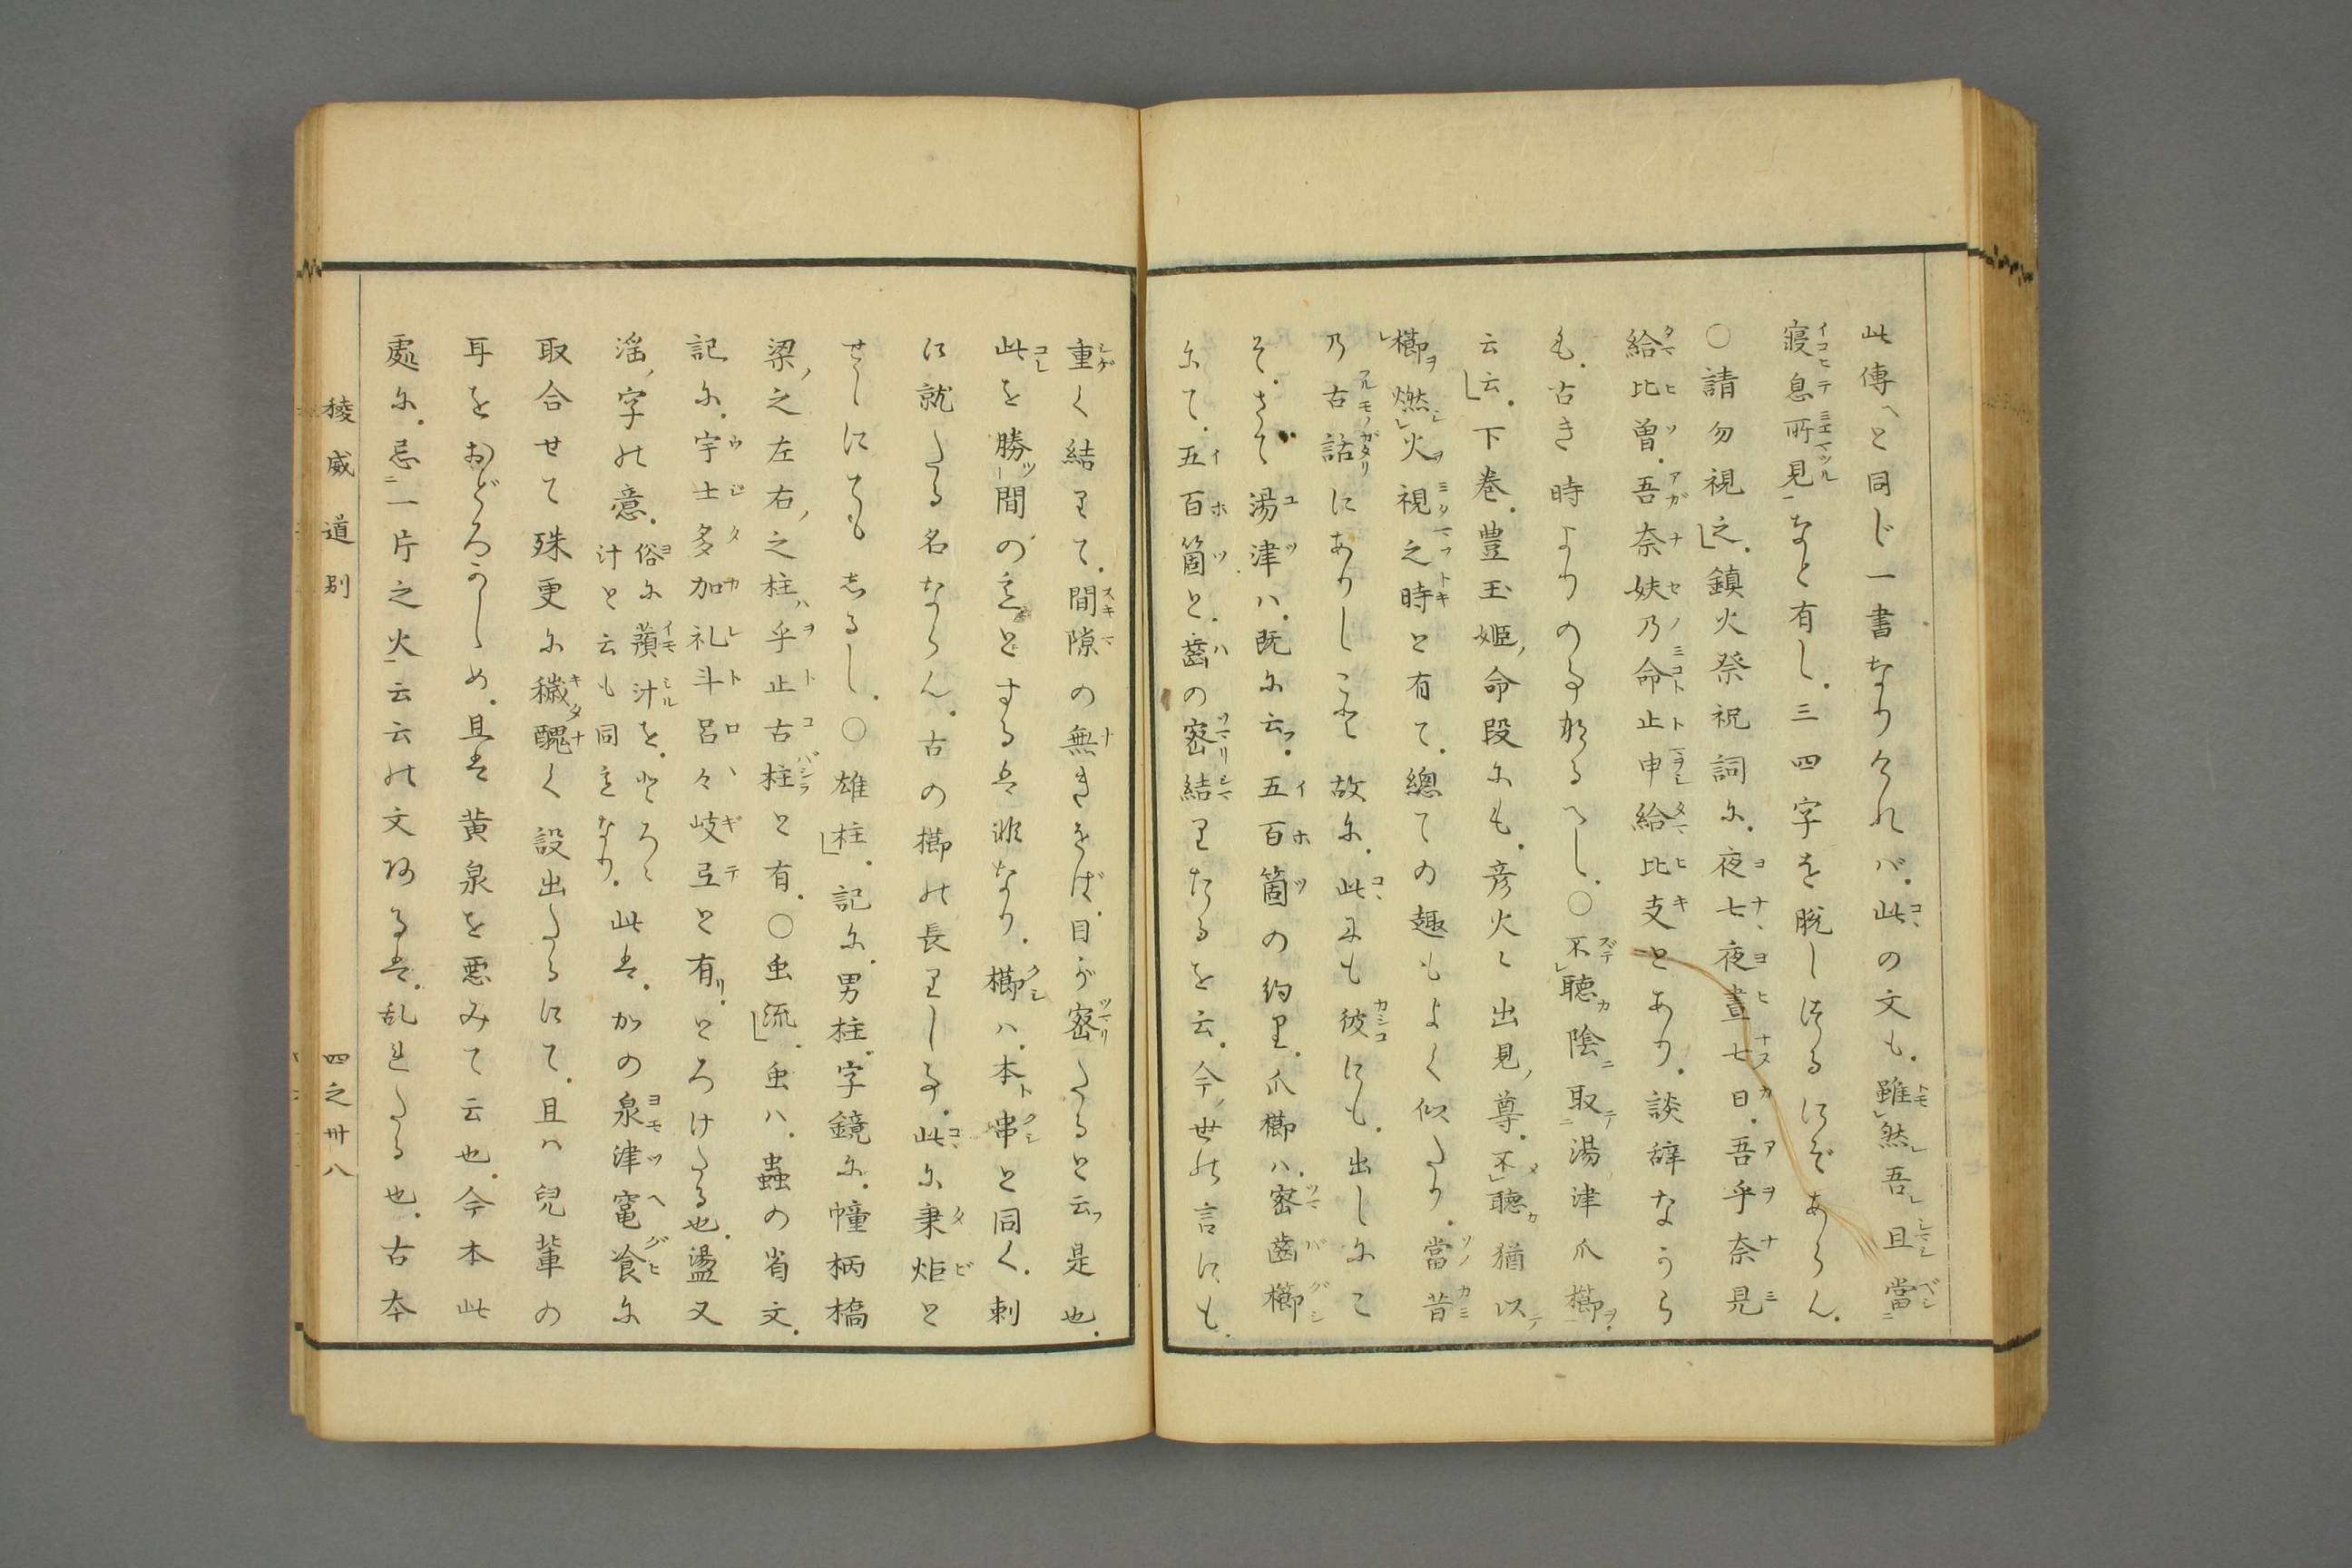 此傳へと同じ一書なりけれバ.此の文も.雖然吾且當
寝息所見なと有し.三四字を脱しけるにぞあらん.
○請勿視之.鎮火祭祝詞尓.夜七夜晝七日.吾乎奈見
給比曽.吾奈妋乃命止申給比支とあり.談辞なうら
も.古き時よりの事なるへし.○不聴陰取湯津爪櫛.
云云.下巻.豊玉姫命段尓も.彦火々出見尊.不聴猶以
櫛燃火視之時と有て.總ての趣もよく似たり.當昔
乃古話にありしこそ故尓.此にも彼にも.出し尓こ
そ.さて湯津ハ.既尓云.五百箇の約里.爪櫛ハ.密歯櫛
尓て.五百箇と.歯の密結里たるを云.今世の言にも.
重く結里て.間隙の無きをば.目が密たると云是也.
此を勝間の意とするは非なり.櫛ハ.本串と同く.刺
に就たる名ならん.古の櫛の長里し事.此尓秉炬と
せしにても志るし.○雄柱.記尓.男柱.字鏡尓.幢柄橋
梁之左右之柱ハ乎止古柱と有.○虫流.虫ハ.蟲の省文.
記尓.宇士多加礼斗呂々岐弖と有.とろけたる也.盪又
滛字の意.俗尓蘱汁を.とろゝ
汁と云も同意なり.此は.かの泉津竃飡尓
取合せて殊更尓穢醜く設出たるにて.且ハ兒輩の
耳をおどろかしめ.且は黄泉を悪みて云也.今本此
處尓.忌一片之火云云の文阿るは.乱れたる也.古本
稜威道別
四之卅八